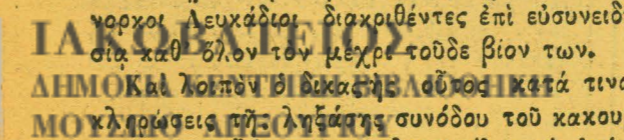 νορκοι Λευκάδιοι διακριθέντες ἐπὶ εὐσυνειδ
σίᾳ καθ' ὅλον τὸν μέχρι τοῦδε βίον των.
Καὶ λοιπὸν ὁ δικαστὴς οὗτος κατά τινα
κληρώσεις τῆς ληξάσης συνόδου τοῦ κακου
ΙΑΚΩΒΑΤΕΙΟΣ
ΔΗΜΟΣΙΑ ΚΕΝΤΡΙΚΗ ΒΙΒΛΙΟΘΗΚΗ
ΜΟΥΣΕΙΟ ΛΗΞΟΥΡΙΟΥ